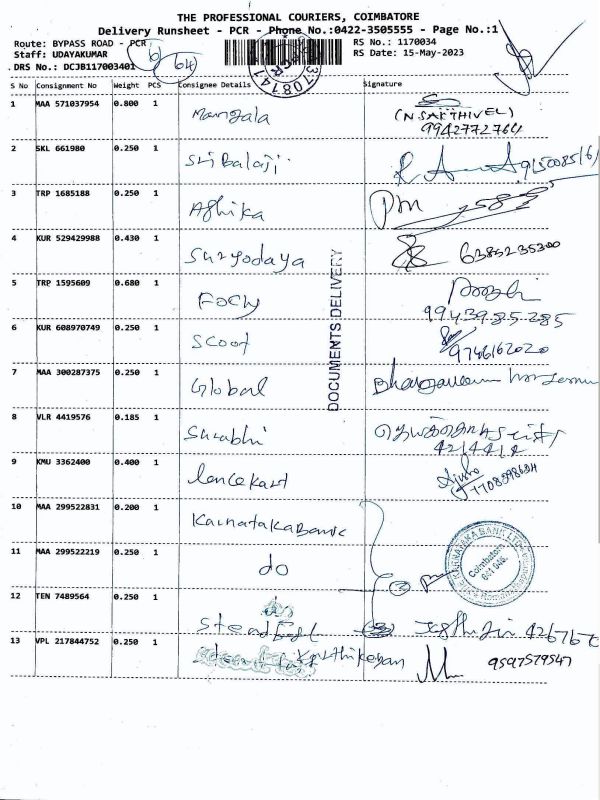 THE PROFESSIONAL COURIERS, COIMBATORE
Delivery Runsheet - PCR - Phone No.:0422-3505555 - Page No.:1
Route: BYPASS ROAD - PCR RS No.: 1170034
Staff: UDAYAKUMAR RS Date: 15-May-2023
DRS No.: DCJB117003401
S No Consignment No Weight PCS Consignee Details Signature
1 MAA 571037954 0.800 1 Mangala (N SAKTHIVEL)
9942772764
2 SKL 661980 0.250 1 Sri Balaji
3 TRP 1685188 0.250 1 Ashika
4 KUR 529429988 0.430 1 Suryodaya 6385235300
5 TRP 1595609 0.680 1
9943985285
6 KUR 608970749 0.250 1 Scoot
9746162020
7 MAA 300287375 0.250 1 Global
8 VLR 4419576 0.185 1 Surabhi
9 KMU 3362400 0.400 1 lancekart
10 MAA 299522831 0.200 1 Karnataka Bank
11 MAA 299522219 0.250 1 do
12 TEN 7489564 0.250 1
13 VPL 217844752 0.250 1 Karthikeyan 9597579547
DOCUMENTS DELIVERY
KARNATAKA BANK LTD
Coimbatore